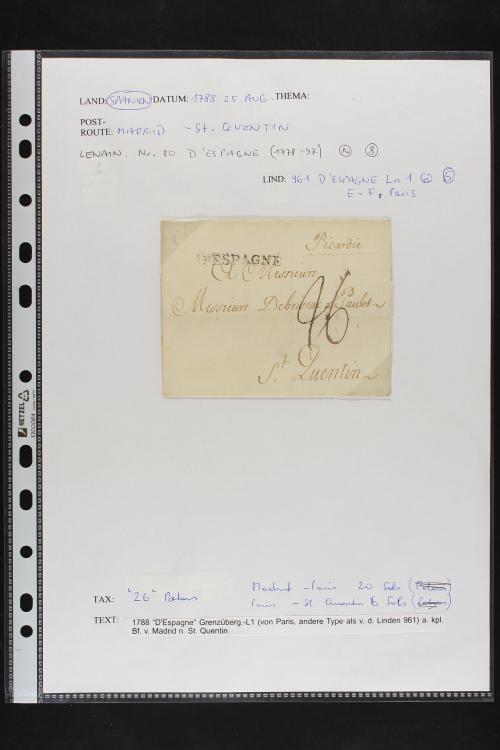 LAND: SPANIEN DATUM: 1788 25 AUG. THEMA:
POST-
ROUTE: MADRID - St. QUENTIN
LENAIN. Nr. 80 D'ESPAGNE (1778-97) N 8
LIND: 961 D'ESPAGNE Ln 1 5
E - F, Paris
Picardie
D'ESPAGNE
A Messieurs
Messieurs
St Quentin
HERZEL
TAX: "26"
Madrid - Paris 20 Sols
Paris - St. Quentin 6 Sols
TEXT: 1788 "D'Espagne" Grenzüberg.-L1 (von Paris, andere Type als v. d. Linden 961) a. kpl.
Bf. v. Madrid n. St. Quentin